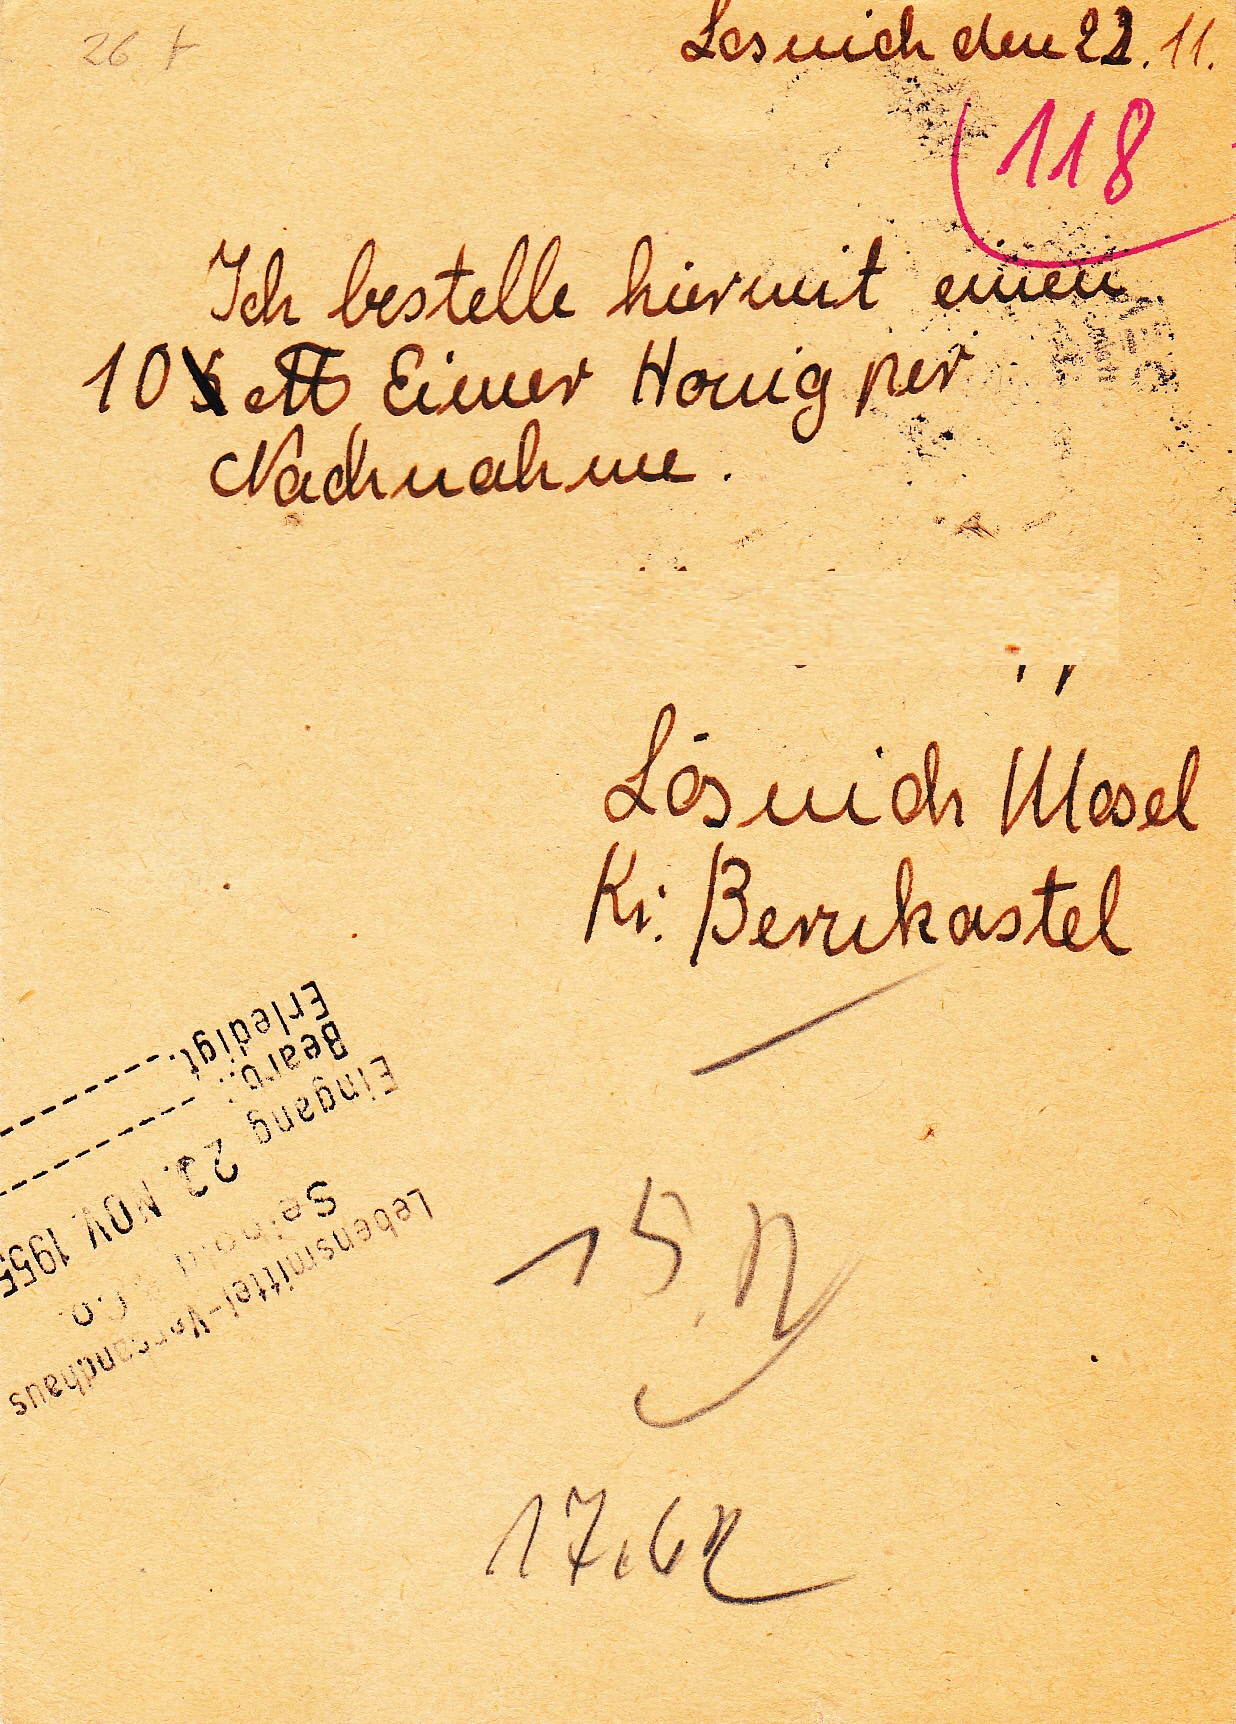 26 t
Lösnich den 22. 11.
118
Ich bestelle hiermit einen
10 ℔ Eimer Honig per
Nachnahme.
Lösnich Mosel
Kr. Bernkastel
15.12
17.62
Lebensmittel-Versandhaus
Seibold & Co.
Eingang 23. NOV. 1955
Bearb.:
Erledigt: